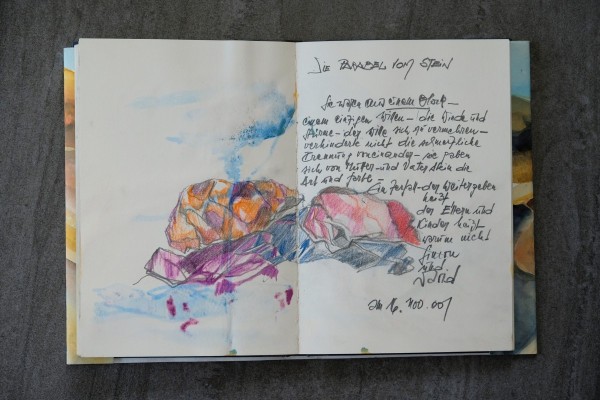 DIE PARABEL VOM STEIN
Sie waren aus einem Block –
einem einzigen Willen – die Winde und
Stürme – der Wille sich zu vermehren –
verhinderte nicht die schmerzliche
Trennung voneinander – sie gaben
sich von Mutter – und Vaterstein die
Art und Farbe –
Ein Zerfall – der weitergeben
heißt
der Eltern und
Kinder
warum nicht
sind
Sand
am 16. Nov. 001